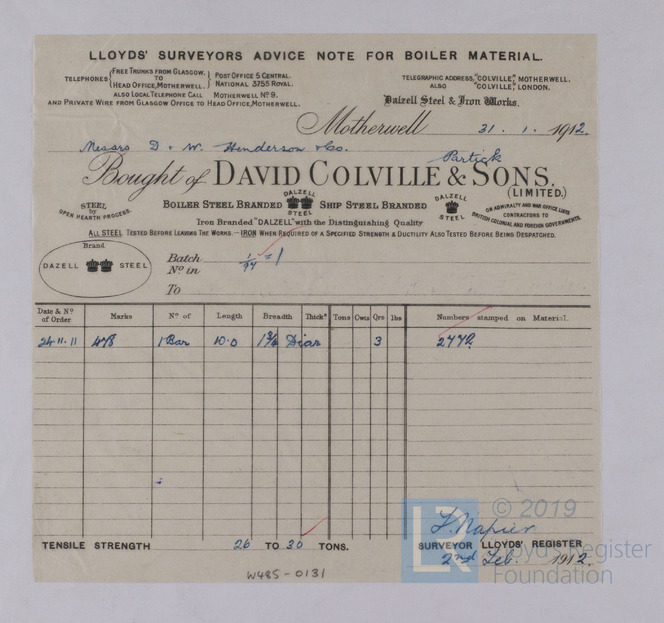 LLOYDS' SURVEYORS ADVICE NOTE FOR BOILER MATERIAL.
TELEPHONES { FREE TRUNKS FROM GLASGOW. TO HEAD OFFICE, MOTHERWELL. } POST OFFICE 5 CENTRAL. NATIONAL 3755 ROYAL.
ALSO LOCAL TELEPHONE CALL MOTHERWELL Nº 9.
AND PRIVATE WIRE FROM GLASGOW OFFICE TO HEAD OFFICE, MOTHERWELL.
TELEGRAPHIC ADDRESS, "COLVILLE", MOTHERWELL.
ALSO "COLVILLE", LONDON.
Dalzell Steel & Iron Works.
Motherwell 31.1.1912.
Messrs D & W. Henderson & Co.
Partick
Bought of DAVID COLVILLE & SONS.
(LIMITED.)
STEEL by OPEN HEARTH PROCESS.
BOILER STEEL BRANDED DALZELL STEEL SHIP STEEL BRANDED DALZELL STEEL
ON ADMIRALTY AND WAR OFFICE LISTS
CONTRACTORS TO
BRITISH COLONIAL AND FOREIGN GOVERNMENTS.
Iron Branded "DALZELL" with the Distinguishing Quality
ALL STEEL TESTED BEFORE LEAVING THE WORKS.—IRON WHEN REQUIRED OF A SPECIFIED STRENGTH & DUCTILITY ALSO TESTED BEFORE BEING DESPATCHED.
Brand
DAZELL STEEL
Batch
Nº in = 1
To
Date & Nº of Order Marks Nº of Length Breadth Thickˢ Tons Cwts Qrs lbs Numbers stamped on Material.
24.11.11 1 Bar 10.0 Diar 3
TENSILE STRENGTH 26 TO 30 TONS.
F. Napier
SURVEYOR LLOYDS' REGISTER
2nd Feb. 1912.
W485-0131
LR
© 2019
Lloyd's Register
Foundation